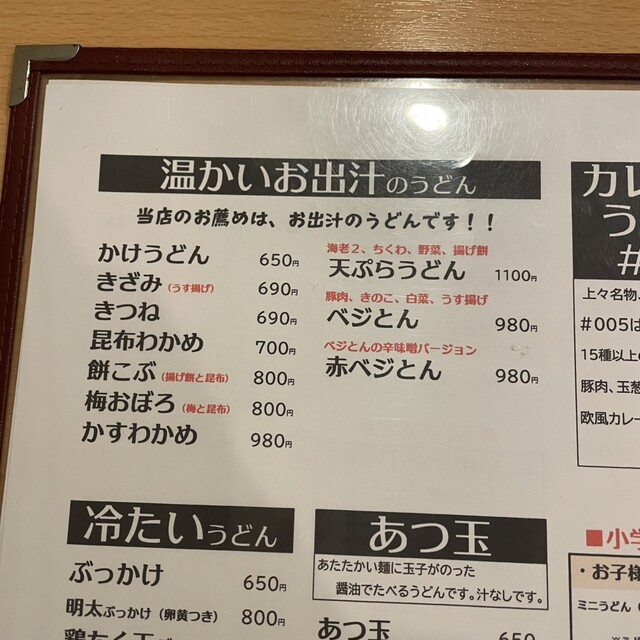 温かいお出汁のうどん
当店のお薦めは、お出汁のうどんです！！
かけうどん 650円
きざみ（うす揚げ） 690円
きつね 690円
昆布わかめ 700円
餅こぶ（揚げ餅と昆布） 800円
梅おぼろ（梅と昆布） 800円
かすわかめ 980円
海老２、ちくわ、野菜、揚げ餅
天ぷらうどん 1100円
豚肉、きのこ、白菜、うす揚げ
ベジとん 980円
ベジとんの辛味噌バージョン
赤ベジとん 980円
カレ
う
#
上々名物、
#005は
15種以上の
豚肉、玉葱
欧風カレー
冷たいうどん
ぶっかけ 650円
明太ぶっかけ（卵黄つき） 800円
あつ玉
あたたかい麺に玉子がのった
醤油でたべるうどんです。汁なしです。
あつ玉 650
■小学
・お子様
ミニうどん（